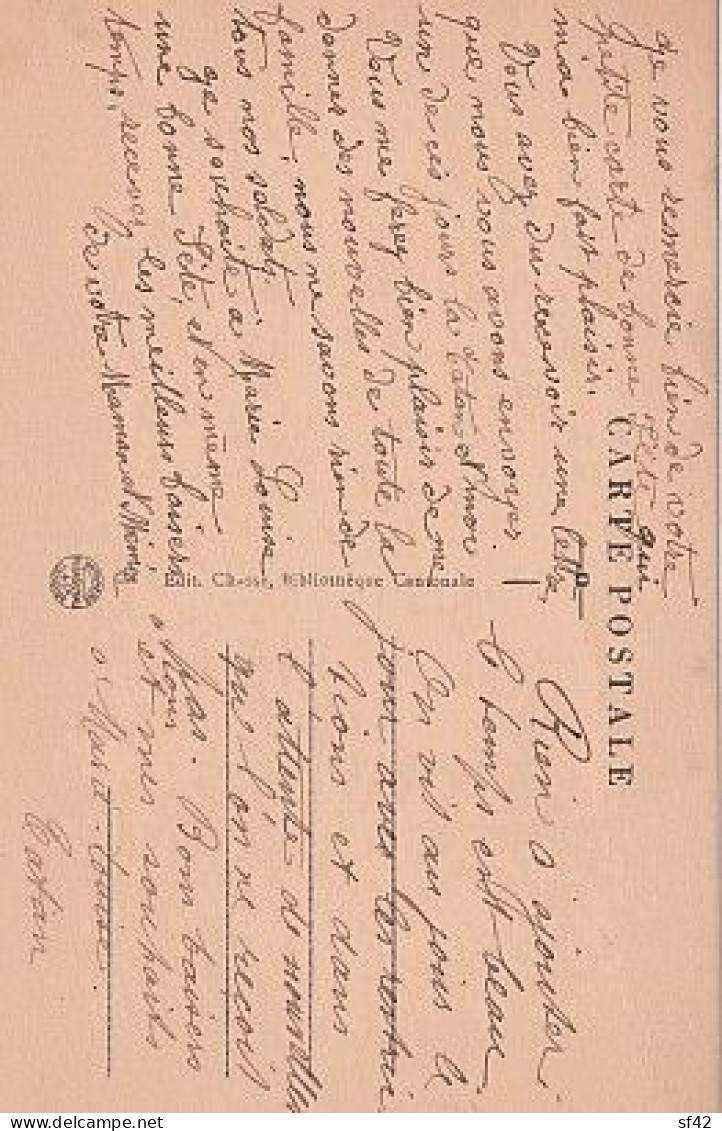 Je vous remercie bien de votre
petite carte de bonne fête qui
m'a bien fait plaisir,
Vous avez du recevoir une lettre
que nous vous avons envoyer
un de ces jours la Catin et moi
Vous me ferez bien plaisir de me
donner des nouvelles de toute la
famille, nous ne savons rien de
tous nos soldats,
Je souhaite à Marie Louise
une bonne fête, et en même
temps, recevez les meilleurs baisers
de votre Maman et Mémé
CARTE POSTALE
Edit. Chasse, Bibliothèque Cantonale
Rien à ajouter.
le temps est beau
On vit au jour le
jour avec les restric
tions et dans
l'attente de nouvelles
qu'l'on ne reçoit
pas. Bons baisers
à tous
et mes souhaits
à Marie-Louise.
Catin
sf42